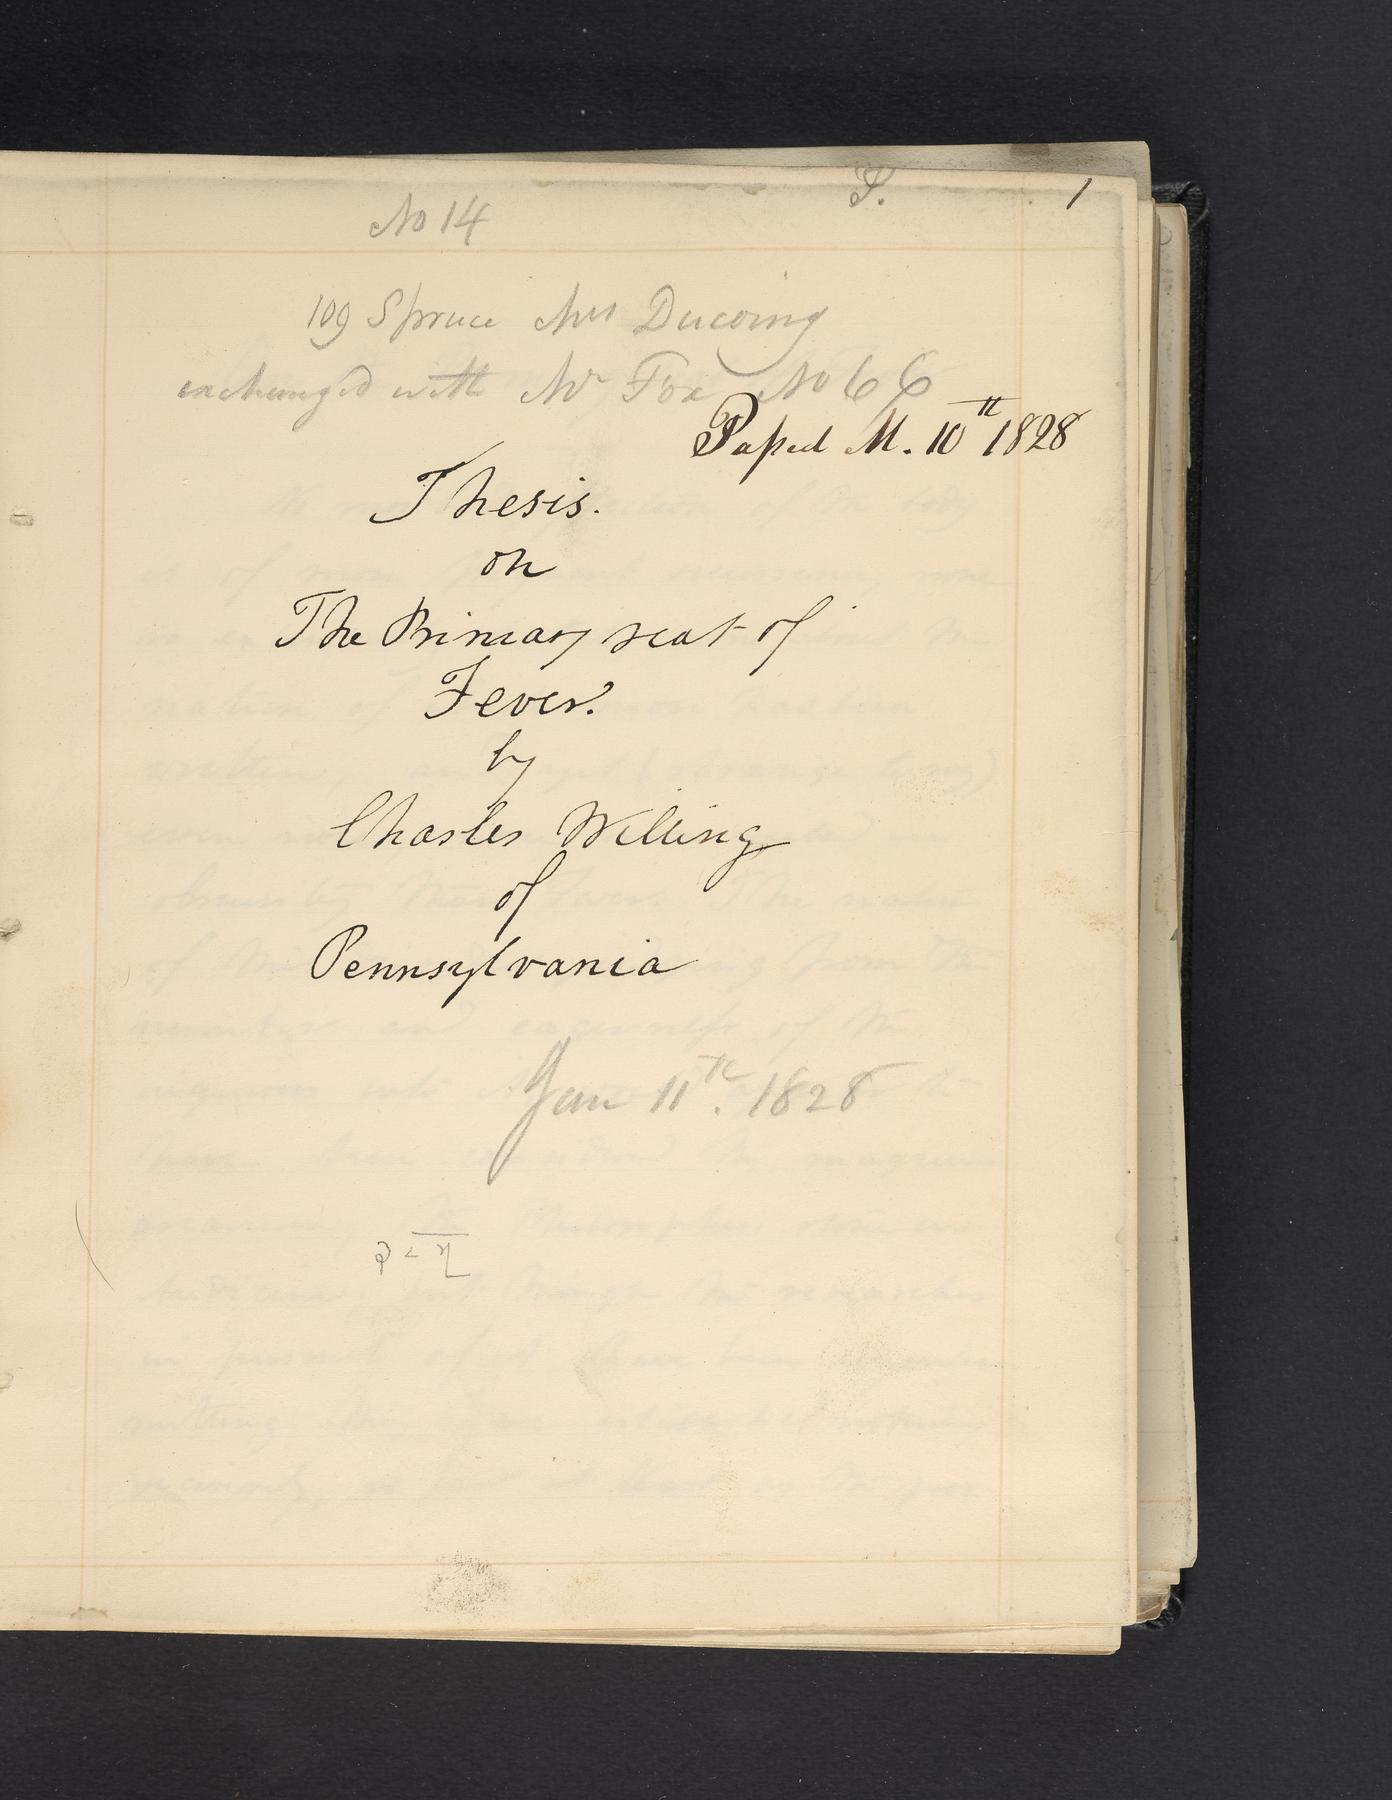 P. 1
No 14
109 Spruce Mrs Ducoing
exchanged with Mr Fox No 66
Passed M. 10th 1828
Thesis.
on
The Primary seat of
Fever.
by
Charles Willing
of
Pennsylvania
Jan 11th. 1828